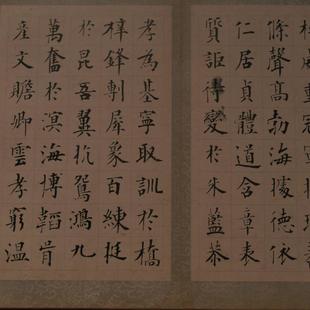 條聲高勃海據德依
仁居貞體道含章表
質詎待變於朱藍恭
孝為基寧取訓於橋
梓鋒剸犀象百練挺
於昆吾翼抗鴛鴻九
萬奮於溟海博韜胄
產文贍卿雲孝窮温